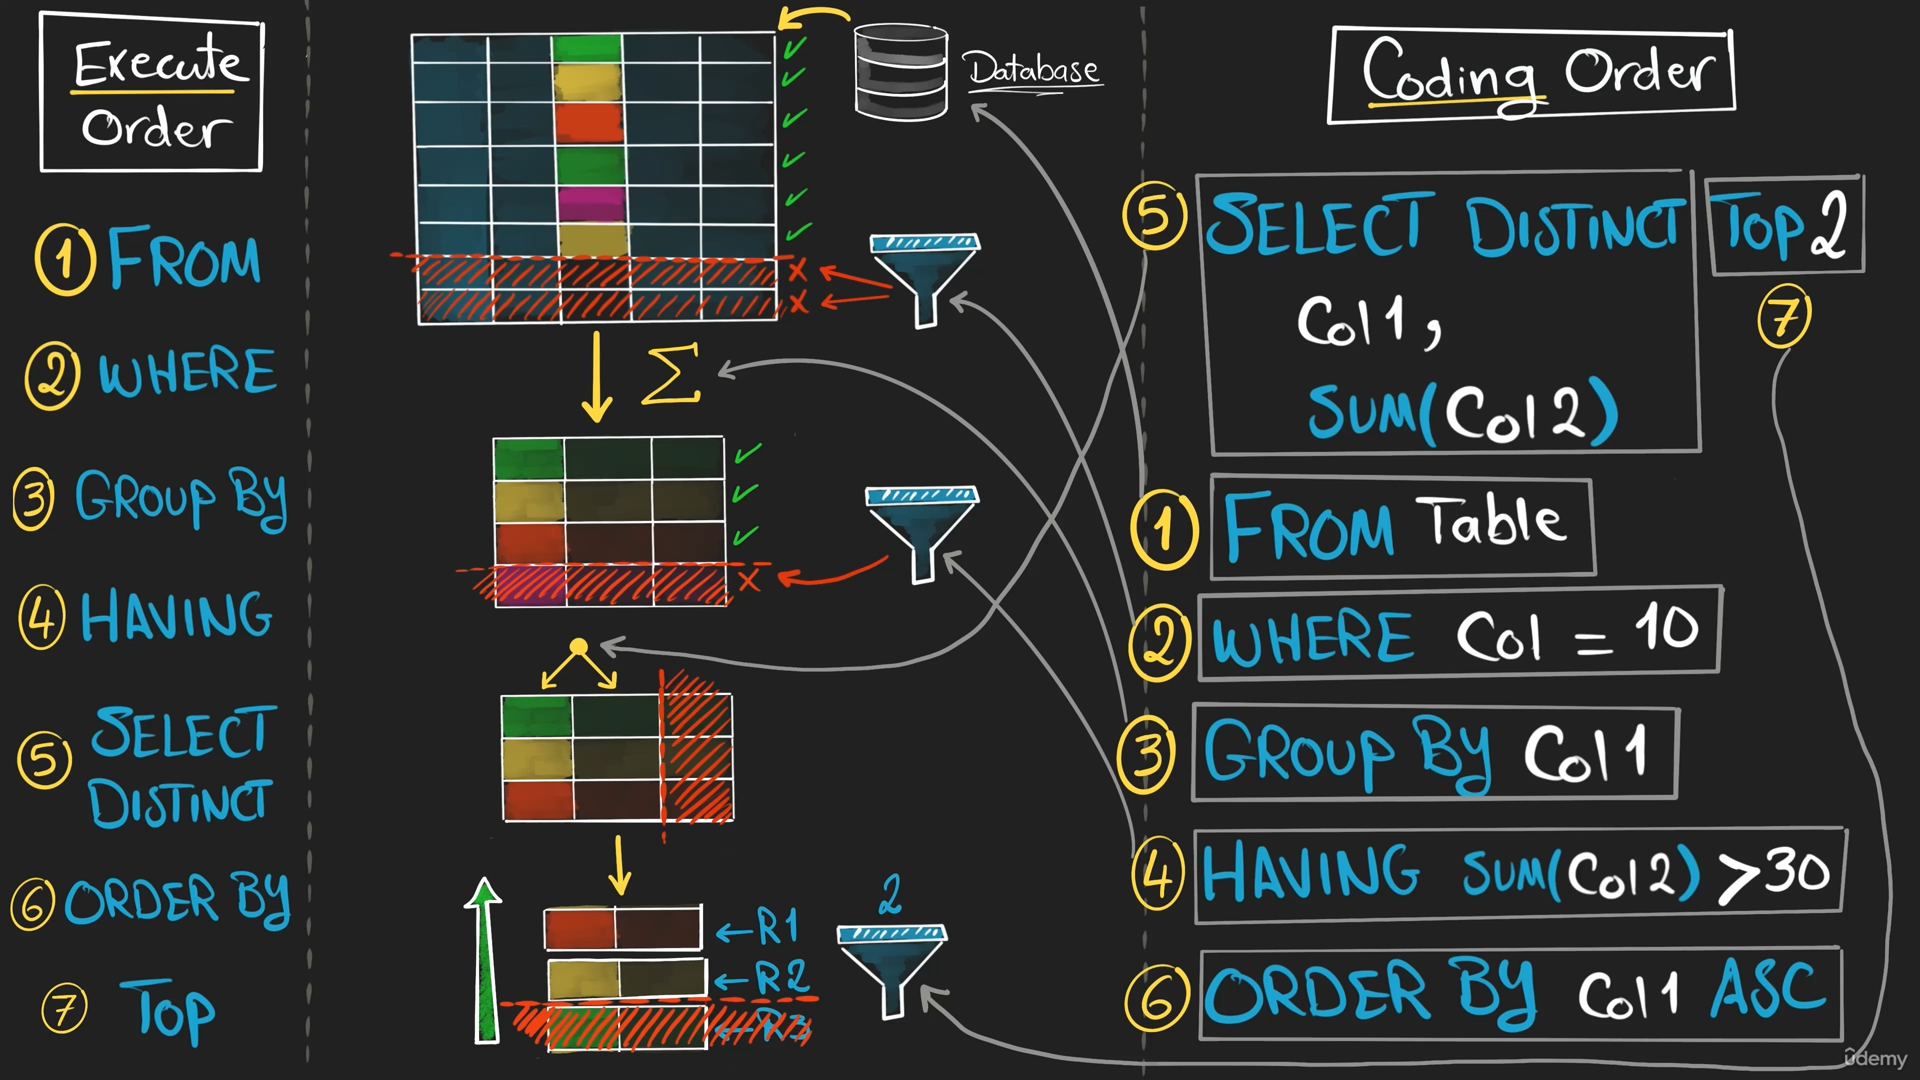 Execute
Order
1 FROM
2 WHERE
3 GROUP BY
4 HAVING
5 SELECT
DISTINCT
6 ORDER BY
7 TOP
Database
Σ
✓
✓
✓
✓
✓
✓
X
X
✓
✓
✓
X
←R1
←R2
←R3
2
Coding Order
5 SELECT DISTINCT TOP 2
7
Col1,
SUM(Col2)
1 FROM Table
2 WHERE Col = 10
3 GROUP BY Col1
4 HAVING SUM(Col2) >30
6 ORDER BY Col1 ASC
ûdemy